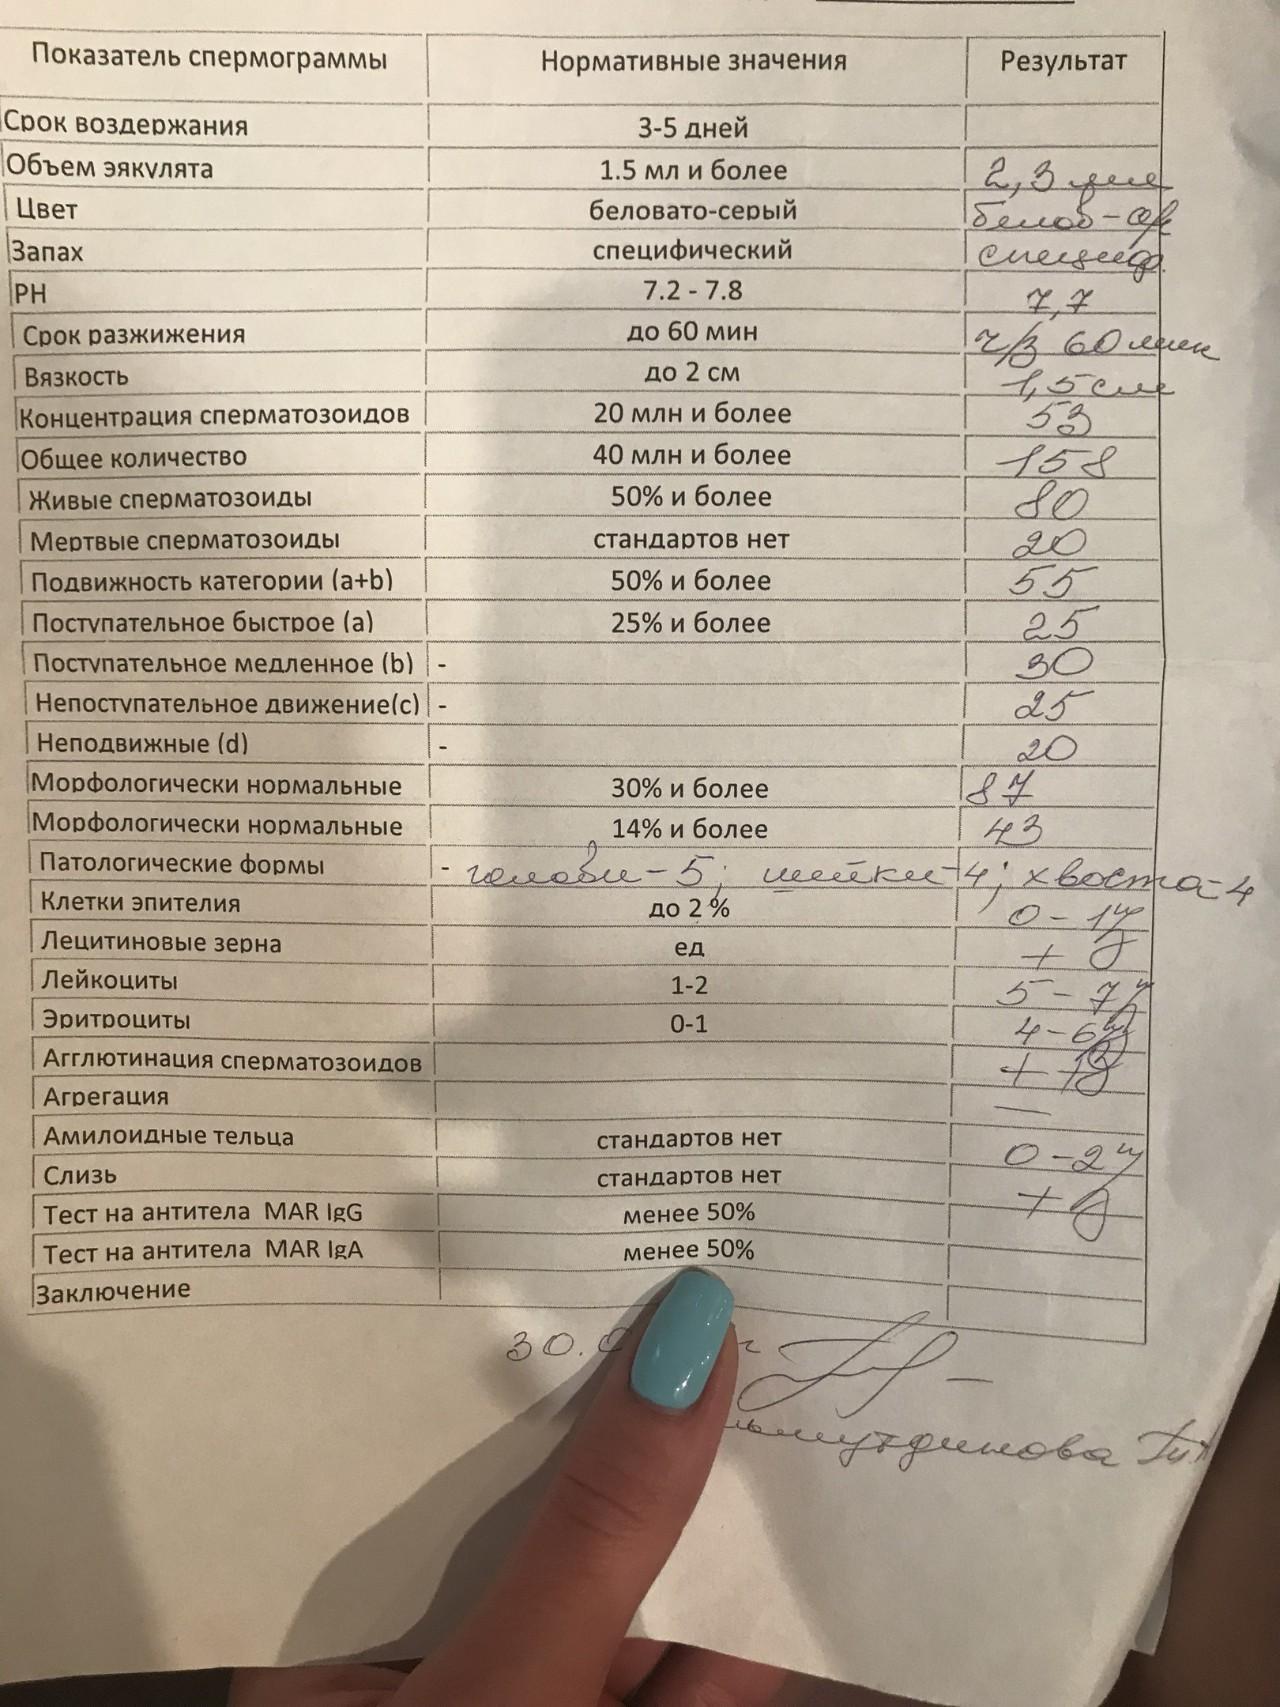 Показатель спермограммы Нормативные значения Результат
Срок воздержания 3-5 дней
Объем эякулята 1.5 мл и более 2,3 мл
Цвет беловато-серый белов-сер
Запах специфический специф.
РН 7.2 - 7.8 7,7
Срок разжижения до 60 мин ч/з 60 мин
Вязкость до 2 см 1,5 см
Концентрация сперматозоидов 20 млн и более 53
Общее количество 40 млн и более 158
Живые сперматозоиды 50% и более 80
Мертвые сперматозоиды стандартов нет 20
Подвижность категории (a+b) 50% и более 55
Поступательное быстрое (a) 25% и более 25
Поступательное медленное (b) - 30
Непоступательное движение(c) - 25
Неподвижные (d) - 20
Морфологически нормальные 30% и более 87
Морфологически нормальные 14% и более 43
Патологические формы - головы-5; шейки-4; хвоста-4
Клетки эпителия до 2 % 0-1
Лецитиновые зерна ед +
Лейкоциты 1-2 5-7
Эритроциты 0-1 4-6
Агглютинация сперматозоидов +
Агрегация —
Амилоидные тельца стандартов нет 0-2
Слизь стандартов нет +
Тест на антитела MAR IgG менее 50%
Тест на антитела MAR IgA менее 50%
Заключение
30.